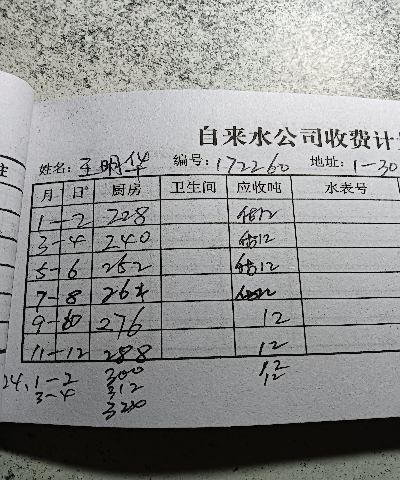 自来水公司收费计
姓名: 王明华 编号: 172260 地址: 1-30
注
月 日 厨房 卫生间 应收吨 水表号
1-2 228 12
3-4 240 12
5-6 252 12
7-8 264 12
9-10 276 12
11-12 288 12
24.1-2 300 12
3-4 312 12
320